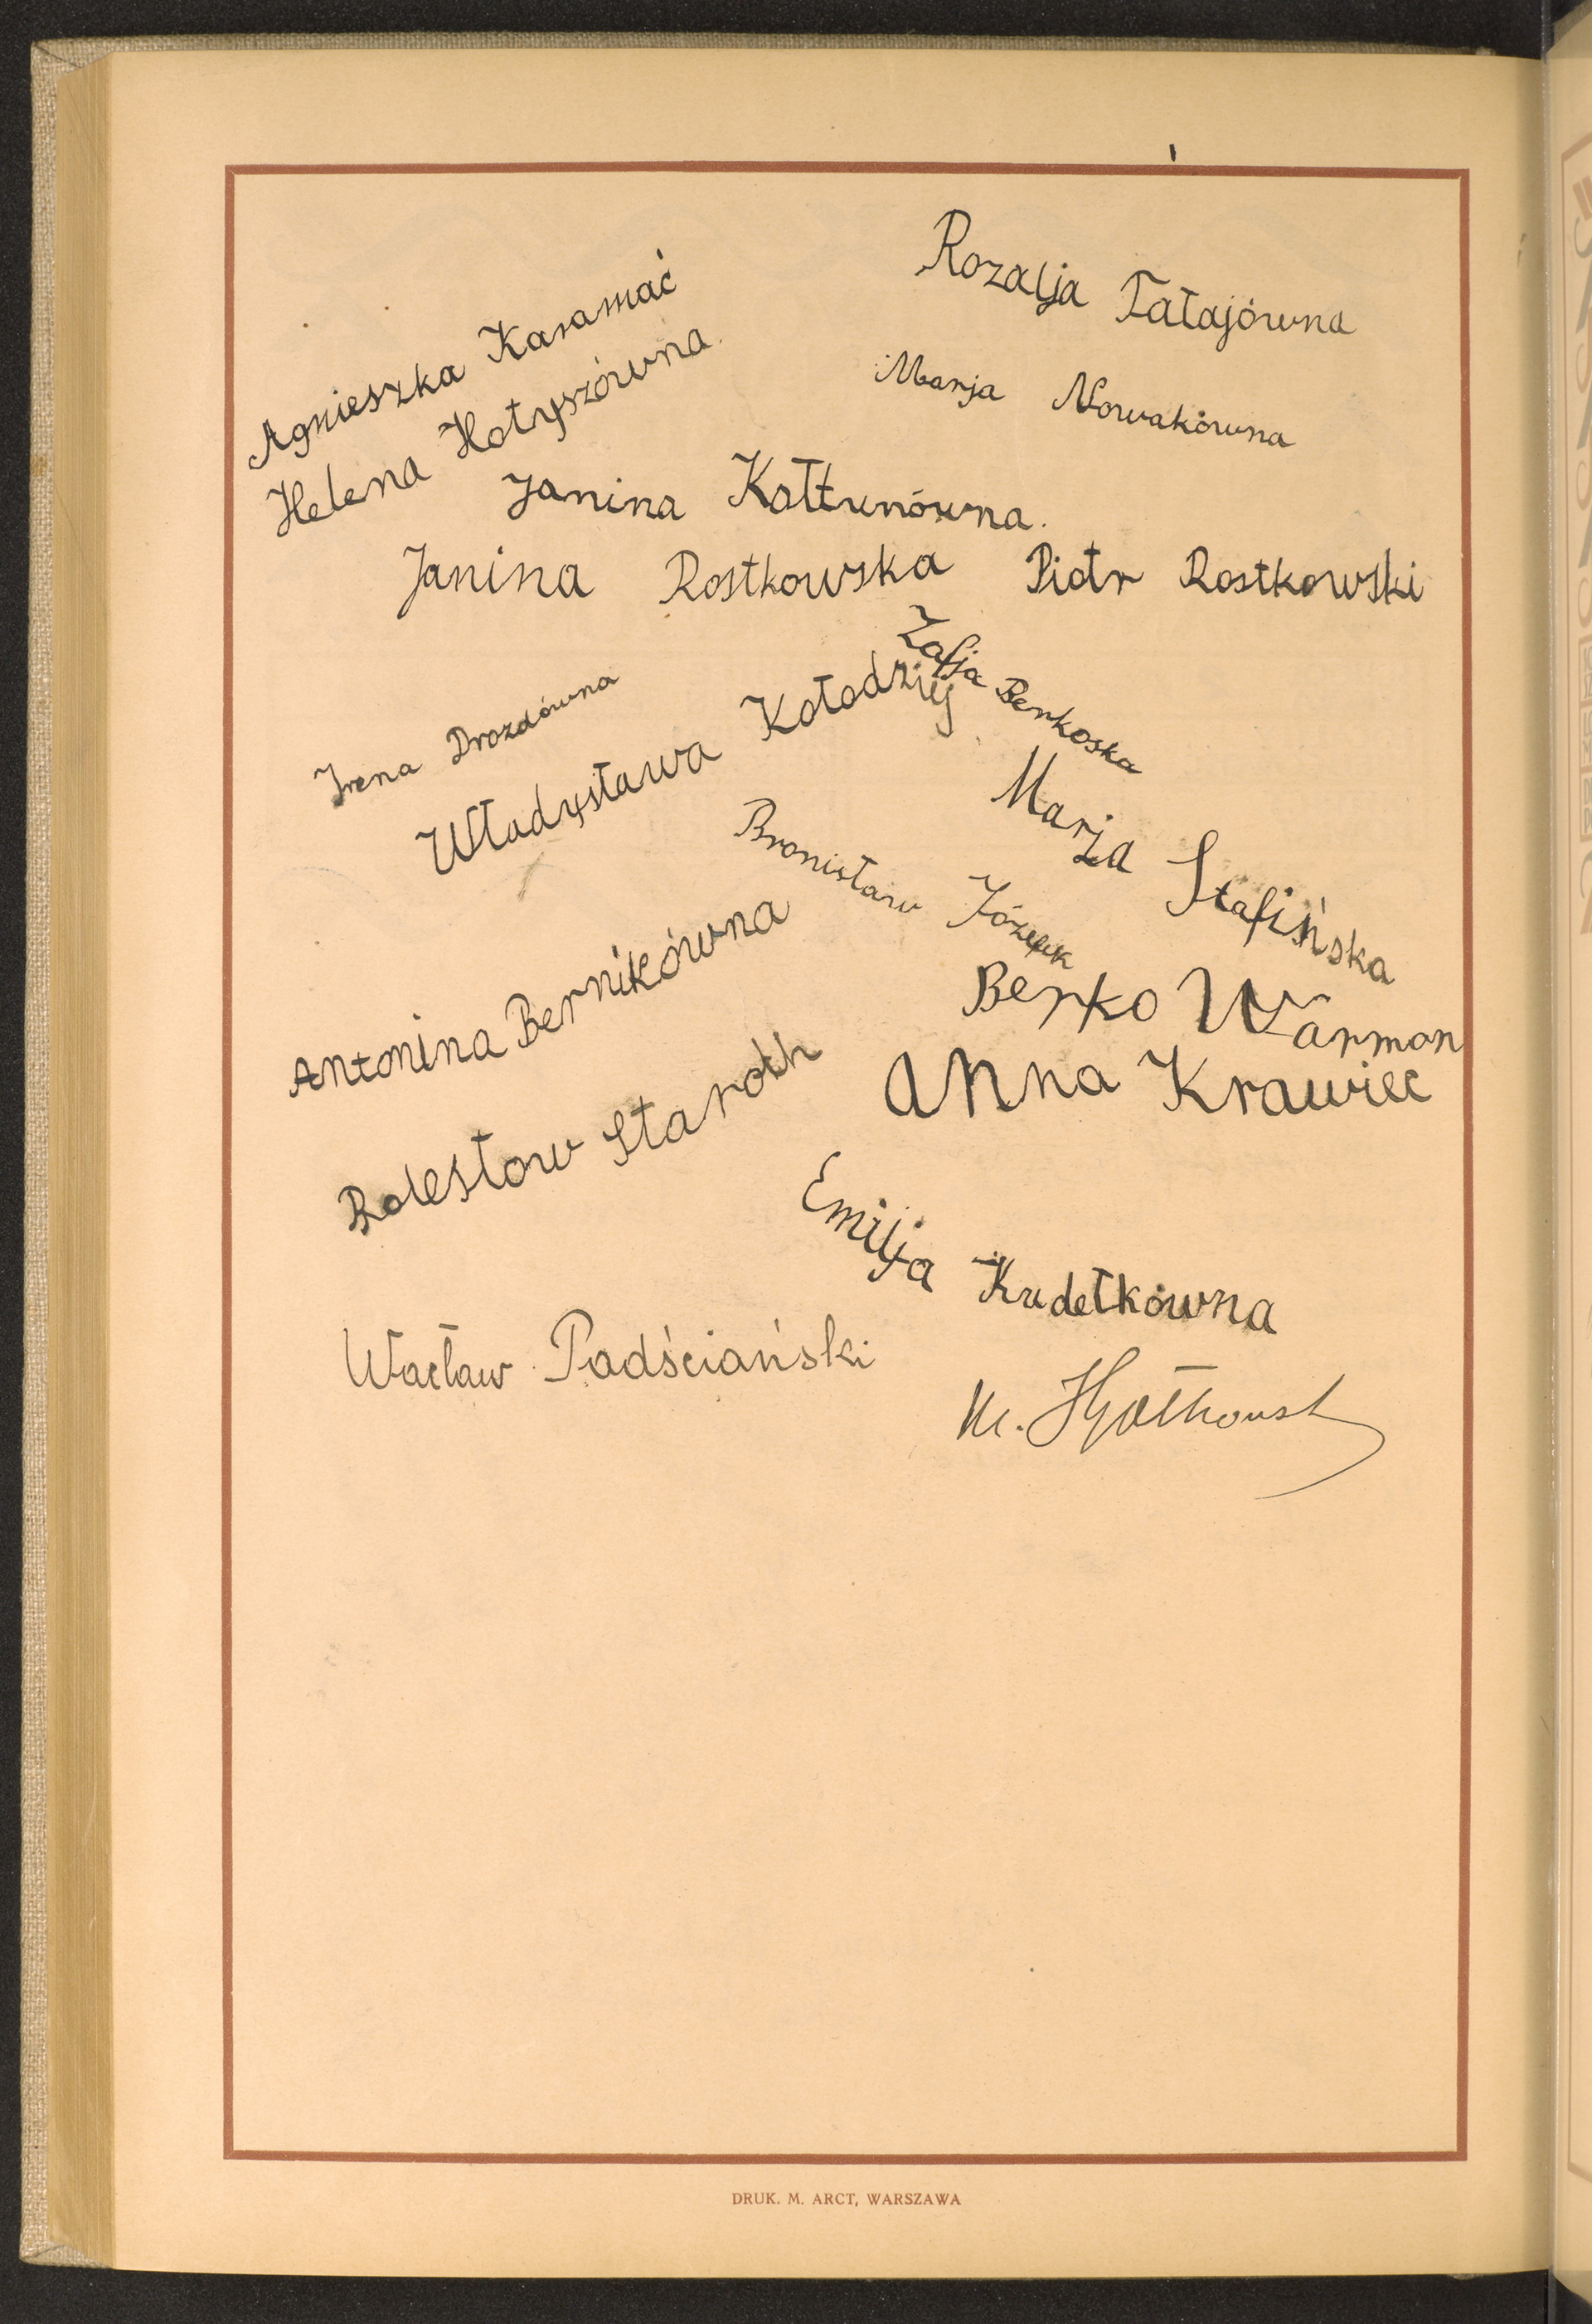 Rozalja Fałajówna
Agnieszka Karamać
Marja Nowakówna
Helena Hotyszówna
Janina Kołtunówna.
Janina Rostkowska Piotr Rostkowski
Zofja Berkoska
Irena Drozdówna
Władysława Kołodziej
Marja Stafińska
Bronisław Józefek
Antonina Bernikówna
Berko Warman
Anna Krawiec
Bolesłow Staroth
Emilja Kudełkówna
Wacław Padściański
M.
DRUK. M. ARCT, WARSZAWA